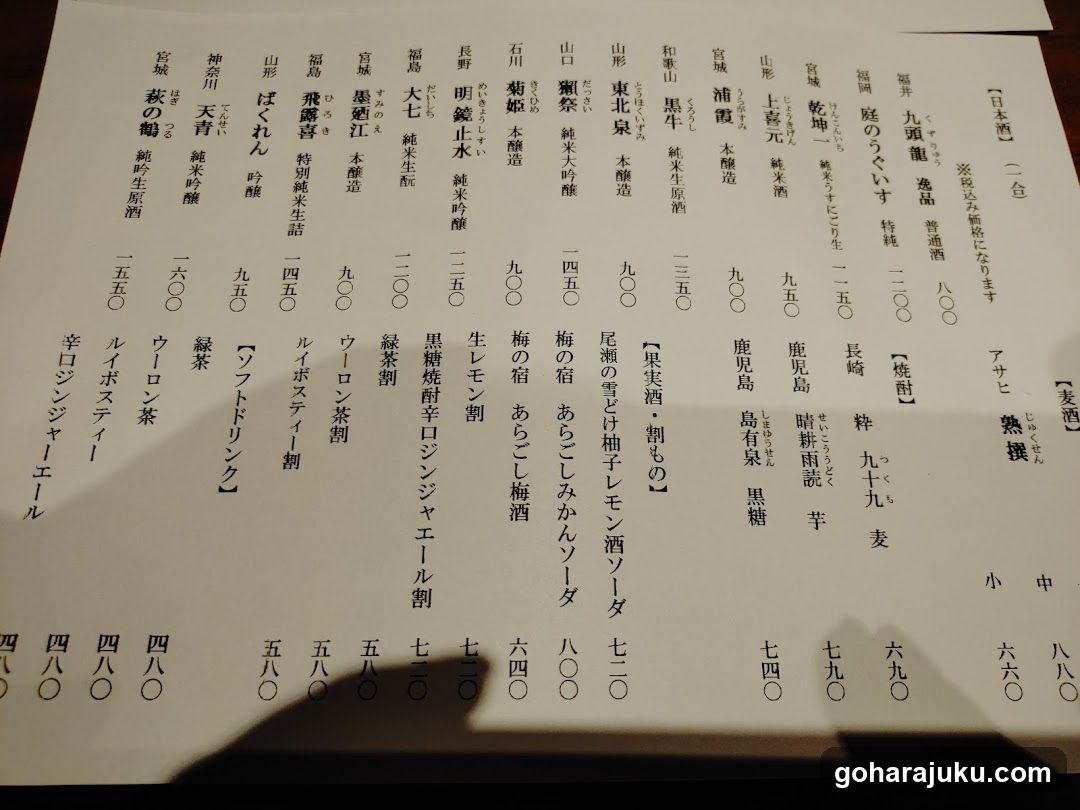 【日本酒】 (一合)
※税込み価格になります
福井 九頭龍 くずりゅう 逸品 普通酒 八〇〇
福岡 庭のうぐいす 特純 一二〇〇
宮城 乾坤一 けんこんいち 純米うすにごり生 一一五〇
山形 上喜元 じょうきげん 純米酒 九五〇
宮城 浦霞 うらがすみ 本醸造 九〇〇
和歌山 黒牛 くろうし 純米生原酒 一三五〇
山形 東北泉 とうほくいずみ 本醸造 九〇〇
山口 獺祭 だっさい 純米大吟醸 一四五〇
石川 菊姫 きくひめ 本醸造 九〇〇
長野 明鏡止水 めいきょうしすい 純米吟醸 一二五〇
福島 大七 だいしち 純米生酛 一二〇〇
宮城 墨廼江 すみのえ 本醸造 九〇〇
福島 飛露喜 ひろき 特別純米生詰 一四五〇
山形 ばくれん 吟醸 九五〇
神奈川 天青 てんせい 純米吟醸 一六〇〇
宮城 萩の鶴 はぎ つる 純吟生原酒 一五五〇
【麦酒】
アサヒ 熟撰 じゅくせん
中 八八〇
小 六六〇
【焼酎】
長崎 粋 九十九 つくも 麦 六九〇
鹿児島 晴耕雨読 せいこううどく 芋 七九〇
鹿児島 島有泉 しまゆうせん 黒糖 七四〇
【果実酒・割もの】
尾瀬の雪どけ柚子レモン酒ソーダ 七二〇
梅の宿 あらごしみかんソーダ 八〇〇
梅の宿 あらごし梅酒 六四〇
生レモン割 七二〇
黒糖焼酎辛口ジンジャエール割 七二〇
緑茶割 五八〇
ウーロン茶割 五八〇
ルイボスティー割 五八〇
【ソフトドリンク】
緑茶 四八〇
ウーロン茶 四八〇
ルイボスティー 四八〇
辛口ジンジャーエール 四八〇
goharajuku.com